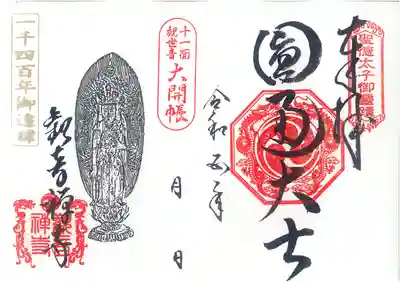 聖徳太子御霊蹟
奉拝
圓通大士
令和五年
十一面
観世音
大開帳
月　日
観音禅寺
観音
禅寺
一千四百年御遠諱